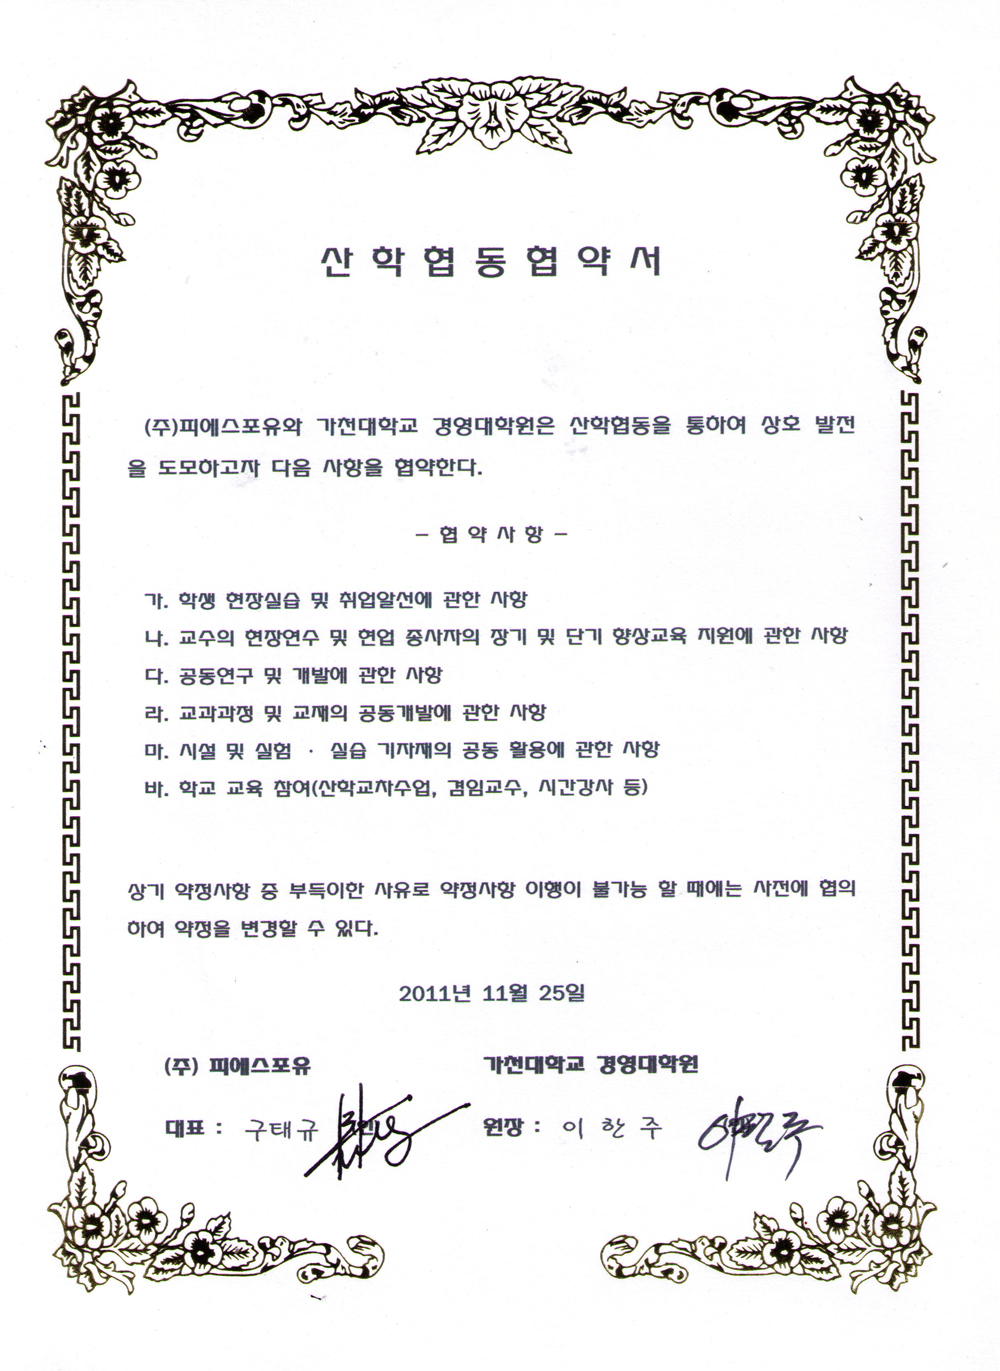 산 학 협 동 협 약 서
(주)피에스포유와 가천대학교 경영대학원은 산학협동을 통하여 상호 발전
을 도모하고자 다음 사항을 협약한다.
– 협 약 사 항 –
가. 학생 현장실습 및 취업알선에 관한 사항
나. 교수의 현장연수 및 현업 종사자의 장기 및 단기 향상교육 지원에 관한 사항
다. 공동연구 및 개발에 관한 사항
라. 교과과정 및 교재의 공동개발에 관한 사항
마. 시설 및 실험 · 실습 기자재의 공동 활용에 관한 사항
바. 학교 교육 참여(산학교차수업, 겸임교수, 시간강사 등)
상기 약정사항 중 부득이한 사유로 약정사항 이행이 불가능 할 때에는 사전에 협의
하여 약정을 변경할 수 있다.
2011년 11월 25일
(주) 피에스포유 가천대학교 경영대학원
대표 : 구태규 원장 : 이 한 주